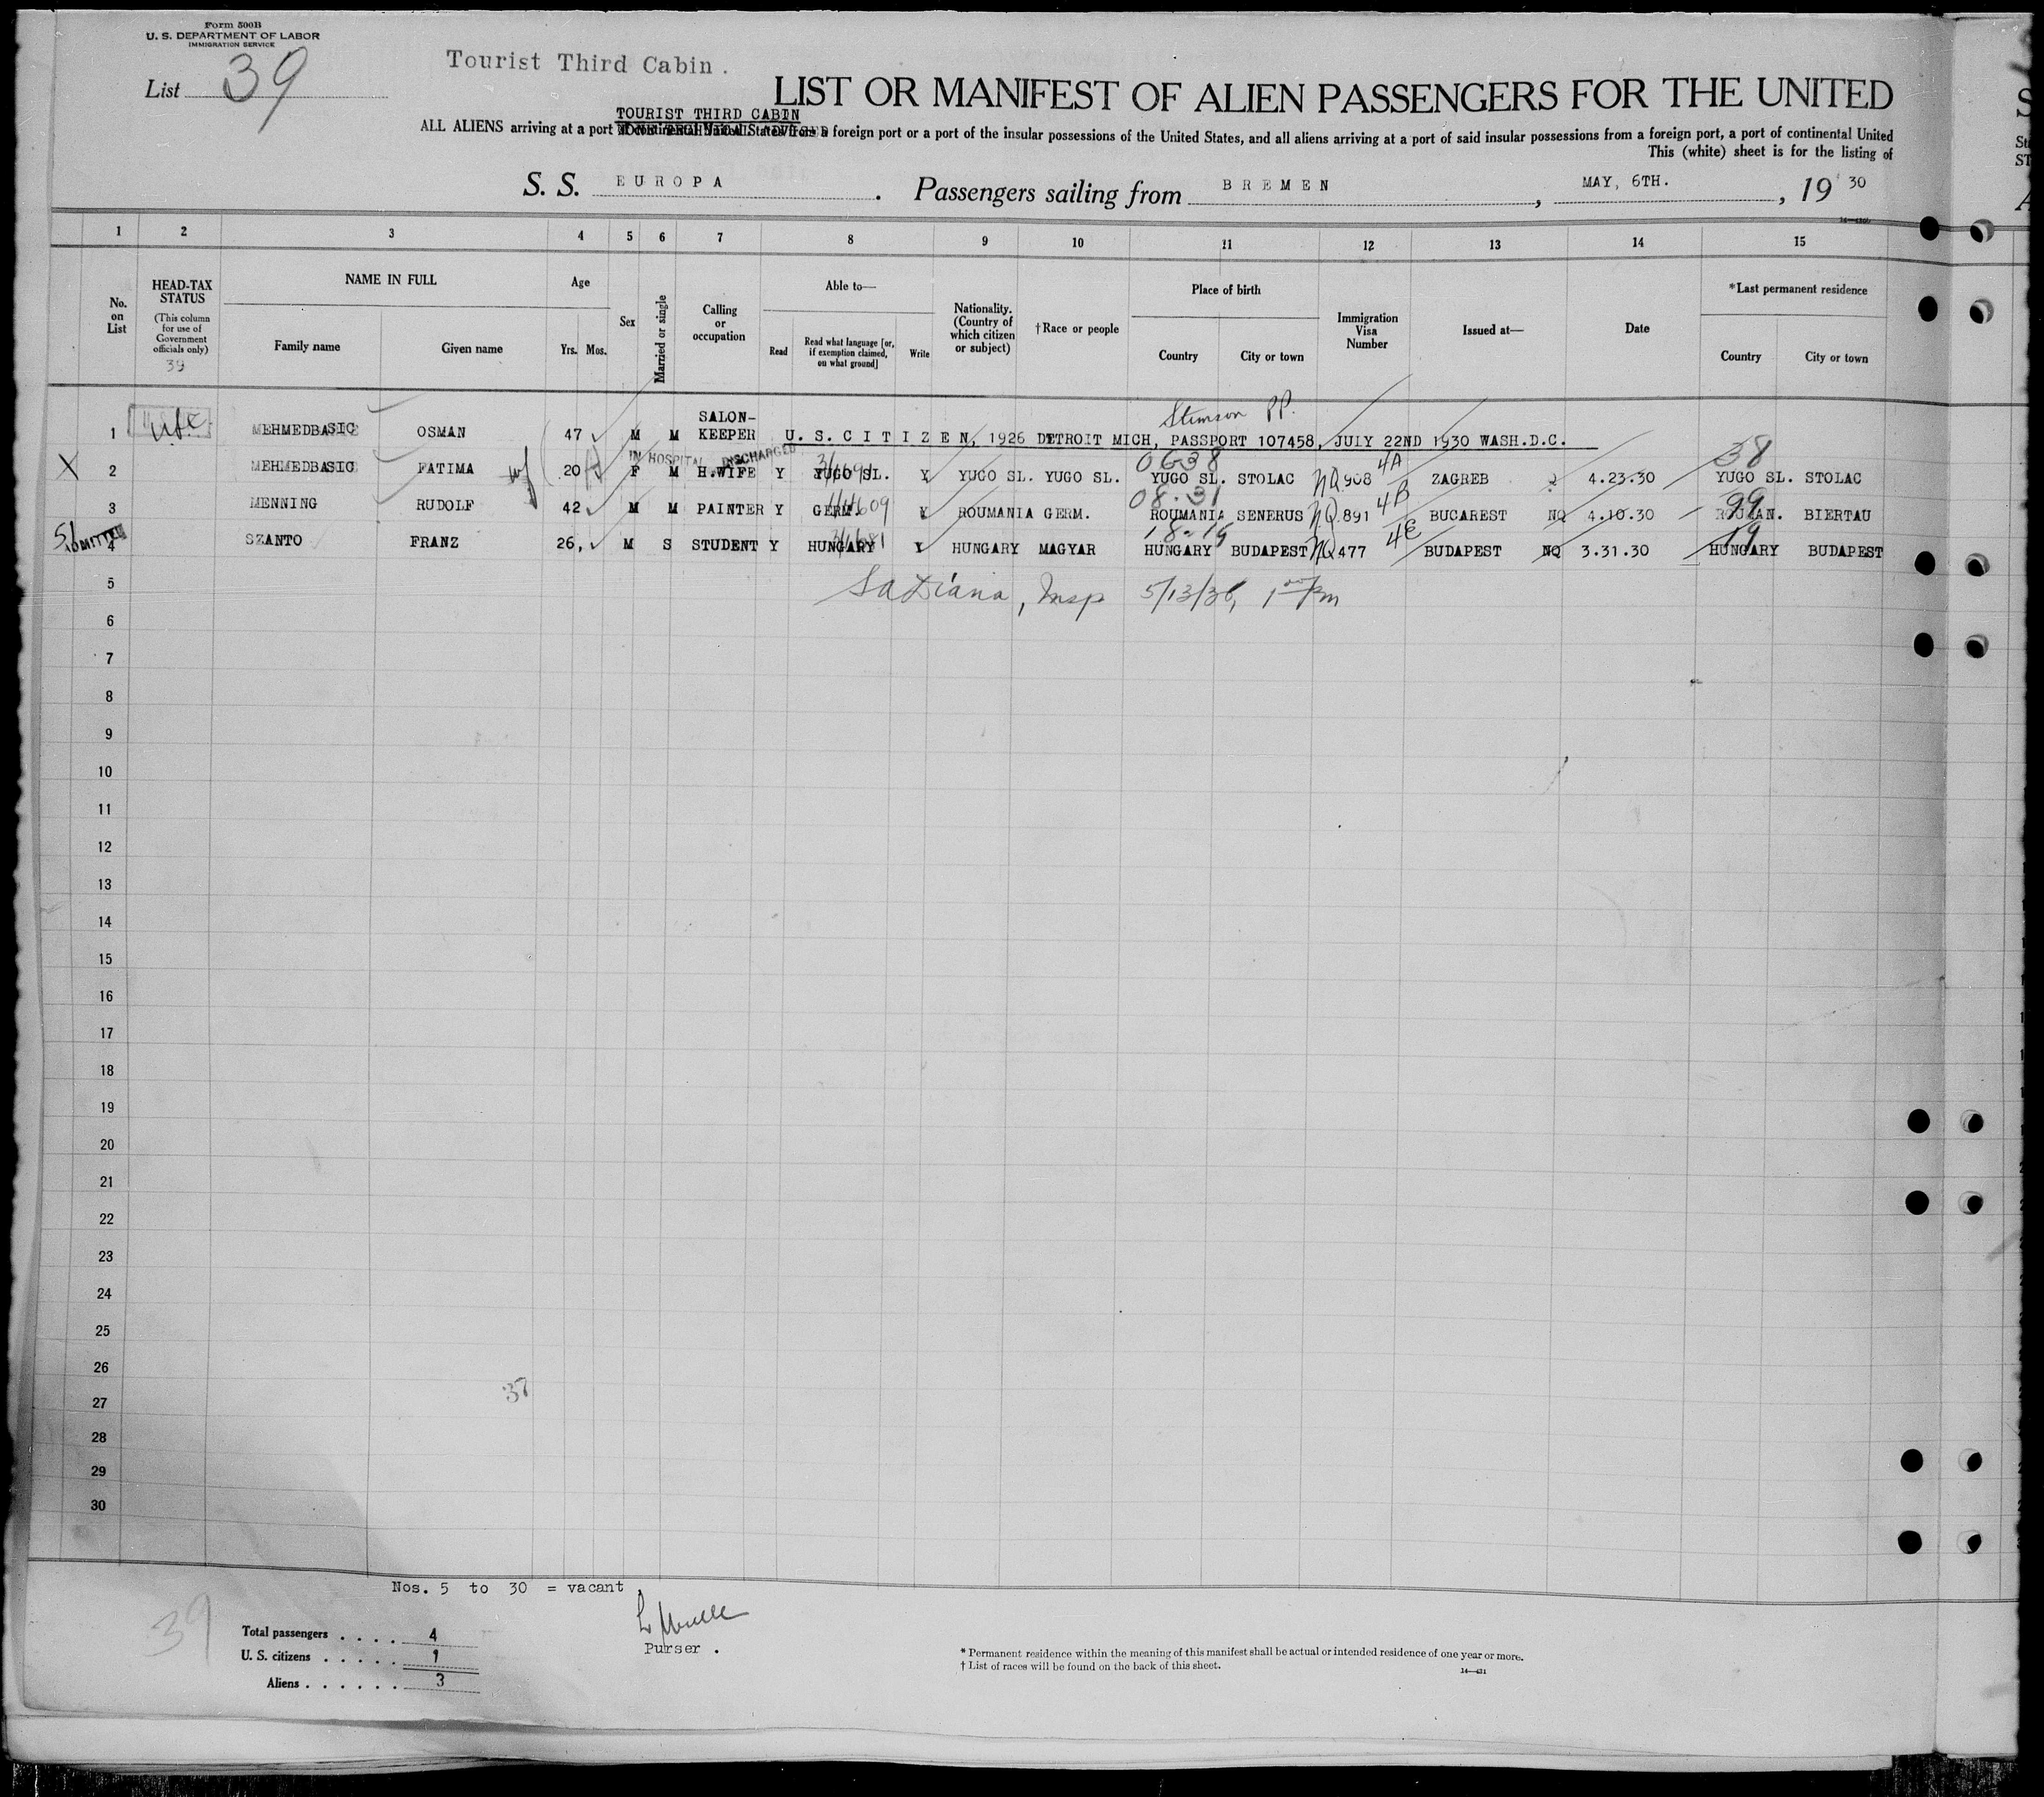 Form 500B
U. S. DEPARTMENT OF LABOR
IMMIGRATION SERVICE
List 39
Tourist Third Cabin.
LIST OR MANIFEST OF ALIEN PASSENGERS FOR THE UNITED
TOURIST THIRD CABIN
ALL ALIENS arriving at a port of continental United States from a foreign port or a port of the insular possessions of the United States, and all aliens arriving at a port of said insular possessions from a foreign port, a port of continental United
This (white) sheet is for the listing of
S. S. EUROPA. Passengers sailing from BREMEN, MAY, 6TH., 19 30
1 2 3 4 5 6 7 8 9 10 11 12 13 14 15
No. on List
HEAD-TAX STATUS
(This column for use of Government officials only)
39
NAME IN FULL
Family name Given name
Age
Yrs. Mos.
Sex
Married or single
Calling or occupation
Able to—
Read Read what language [or, if exemption claimed, on what ground] Write
Nationality. (Country of which citizen or subject)
†Race or people
Place of birth
Country City or town
Immigration Visa Number
Issued at—
Date
*Last permanent residence
Country City or town
Stimson PP.
1 MEHMEDBASIC OSMAN 47 M M SALON-KEEPER U. S. CITIZEN, 1926 DETROIT MICH, PASSPORT 107458, JULY 22ND 1930 WASH.D.C.
IN HOSPITAL DISCHARGED
0638 4A 38
X 2 MEHMEDBASIC FATIMA wf 20 F M H.WIFE Y YUGO SL. Y YUGO SL. YUGO SL. YUGO SL. STOLAC NQ 908 ZAGREB Q 4.23.30 YUGO SL. STOLAC
08.31 4B 99
3 MENNING RUDOLF 42 M M PAINTER Y GERM. Y ROUMANIA GERM. ROUMANIA SENERUS NQ 891 BUCAREST NQ 4.10.30 ROUMAN. BIERTAU
18-19 4E 19
ADMITTED 4 SZANTO FRANZ 26, M S STUDENT Y HUNGARY Y HUNGARY MAGYAR HUNGARY BUDAPEST NQ 477 BUDAPEST NQ 3.31.30 HUNGARY BUDAPEST
5 LaDiana, Insp 5/13/30, 1 PM
6
7
8
9
10
11
12
13
14
15
16
17
18
19
20
21
22
23
24
25
26
37
27
28
29
30
Nos. 5 to 30 = vacant
39
Total passengers .... 4
U. S. citizens ..... 1
Aliens ...... 3
Purser.
* Permanent residence within the meaning of this manifest shall be actual or intended residence of one year or more.
† List of races will be found on the back of this sheet.
14—431